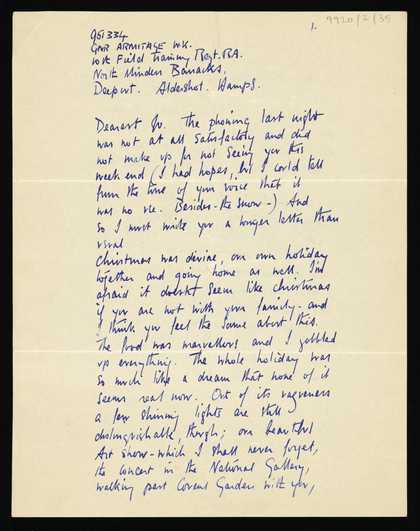 1.
9920/2/35
951334
GNR ARMITAGE W.K.
Field Training Regt. RA.
North Minden Barracks,
Deepcut. Aldershot. Hants.
Dearest Jo. The phoning last night
was not at all satisfactory and did
not make up for not seeing you this
week-end (I had hopes, but I could tell
from the tone of your voice that it
was no use. Besides - the snow -) And
so I must write you a longer letter than
usual
Christmas was divine, our own holiday
together and going home as well. I'm
afraid it doesn't seem like christmas
if you are not with your family - and
I think you feel the same about this.
The food was marvellous and I gobbled
up everything. The whole holiday was
so much like a dream that none of it
seems real now. Out of its vagueness
a few shining lights are still
distinguishable, though; our beautiful
Art Show - which I shall never forget,
the concert in the National Gallery,
walking past Covent Garden with you,